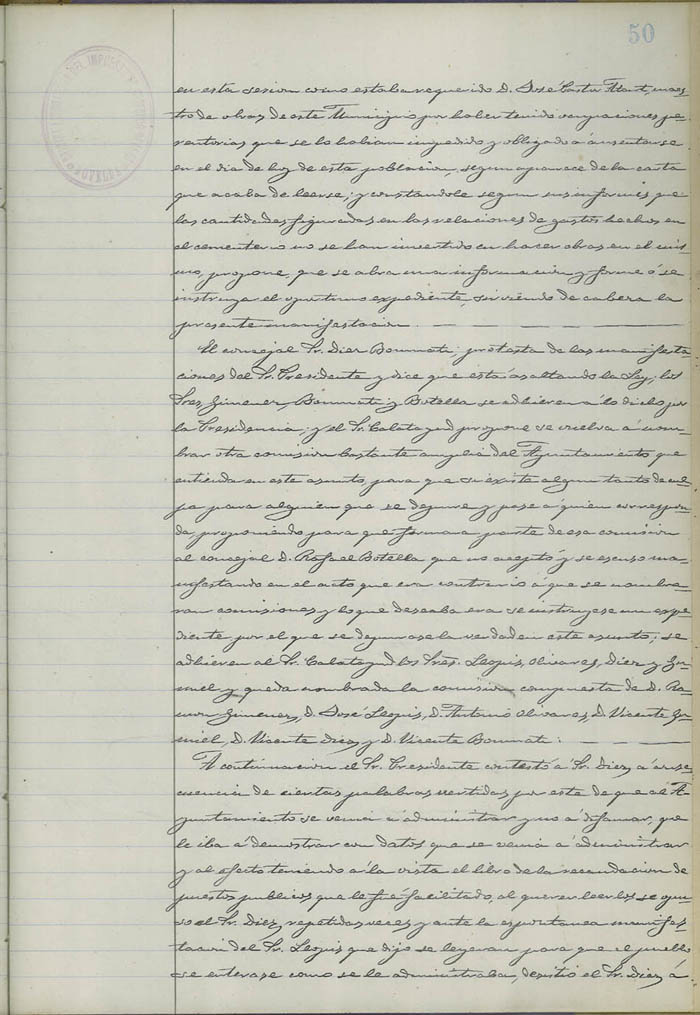 50
en esta sesion como estaba requerido D. José Castor Mart, maes-
tro de obras de este Municipio por haber tenido ocupaciones pe-
rentorias que se lo habian impedido y obligado á ausentarse
en el dia de hoy de esta poblacion, segun aparece de la carta
que acaba de leerse; y constandole segun sus informes que
las cantidades figuradas en las relaciones de gastos hechos en
el cementerio no se han invertido en hacer obras en el mis-
mo, propone, que se abra una informacion y forme ó se
instruya el oportuno expediente, sirviendo de cabeza la
presente manifestacion.
El concejal Sr. Diez Bonmati; protesta de las manifesta-
ciones del Sr. Presidente y dice que está asaltando la Ley; los
Sres. Gimenez, Bonmati y Botella se adhieren á lo dicho por
la Presidencia; y el Sr. Calatayud propone se vuelva á nom-
brar otra comision bastante amplia del Ayuntamiento que
entienda en este asunto, para que si existe algun tanto de cul-
pa para alguien que se depure y pase á quien correspon-
da, proponiendo para que formara parte de esa comision
al concejal D. Rafael Botella que no aceptó y se escusó ma-
nifestando en el acto que era contrario á que se nombra-
ran comisiones y lo que deseaba era se instruyese un expe-
diente por el que se depurase la verdad en este asunto; se
adhieren al Sr. Calatayud los Sres. Llopis, Olivares, Diez y Gu-
miel y queda nombrada la comision compuesta de D. Ra-
mon Gimenez, D. José Llopis, D. Antonio Olivares, D. Vicente Gu-
miel, D. Vicente Diez y D. Vicente Bonmati.
A continuacion el Sr. Presidente contestó á Sr. Diez á conse-
cuencia de ciertas palabras vertidas por este de que al A-
yuntamiento se venia á administrar y no á difamar, que
le iba á demostrar con datos que se venia á administrar
y al efecto teniendo á la vista el libro de la recaudacion de
puestos publicos que le fué facilitado, al querer leerlos se opu-
so el Sr. Diez repetidas veces y ante la espontanea manifes-
tacion del Sr. Llopis que dijo se leyeran para que el pueblo
se enterase como se le administraba, desistió el Sr. Diez á